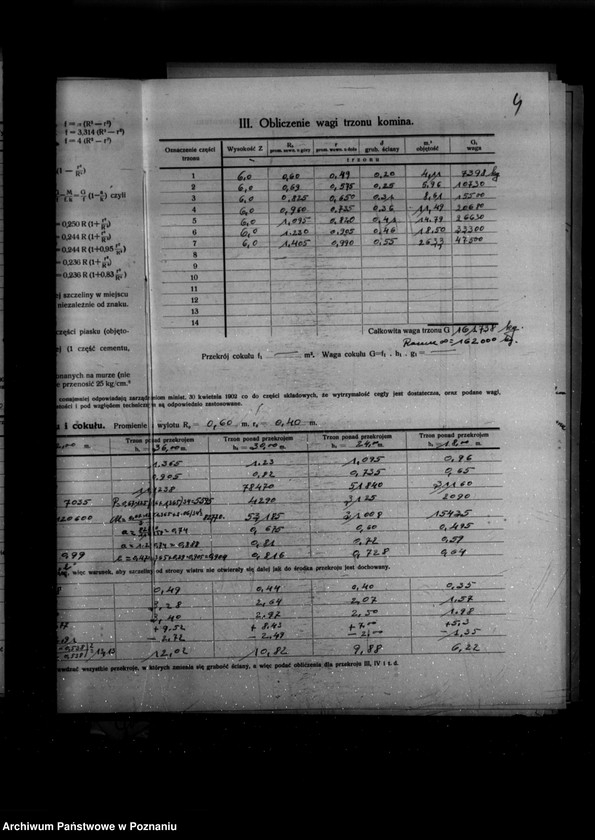 4
f = π (R² — r²)
f = 3,314 (R² — r²)
f = 4 (R² — r²)
III. Obliczenie wagi trzonu komina.
Oznaczenie części trzonu | Wysokość Z | Rₐ prom. zewn. u góry | r prom. wewn. u dołu | d grub. ściany | m.³ objętość | G₁ waga
trzonu
1 6,0 0,60 0,49 0,20 4,11 7398 kg
2 6,0 0,69 0,575 0,25 5,96 10730
3 6,0 0,825 0,650 0,31 8,61 15500
4 6,0 0,960 0,735 0,36 11,49 20680
5 6,0 1,095 0,820 0,41 14,79 26630
6 6,0 1.230 0,905 0,46 18,50 33300
7 6,0 1.405 0,990 0,55 26,33 47500
8
9
10
11
12
13
14
Całkowita waga trzonu G 161738 kg.
= 162000 kg.
Przekrój cokułu f₁ — m². Waga cokułu G=f₁ . b₁ . g₁ = —
= 0,250 R (1+
= 0,244 R (1+
= 0,244 R (1+0,95
= 0,236 R (1+
= 0,236 R (1+0,83
ej szczeliny w miejscu
niezależnie od znaku.
części piasku (objęto-
ej (1 część cementu,
onanych na murze (nie
e przenosić 25 kg/cm.²
odpowiadają zarządzeniom minist. 30 kwietnia 1902 co do części składowych, że wytrzymałość cegły jest dostateczna, oraz podane wagi,
i pod względem technicznym są odpowiednio zastosowane.
u i cokułu. Promienie wylotu Rₒ = 0,60 m. rₒ = 0,40 m.
Trzon ponad przekrojem h₁ = 36,00 m. | Trzon ponad przekrojem h₁ = 30,00 m. | Trzon ponad przekrojem h₁ = 24,00 m. | Trzon ponad przekrojem h₁ = 18,00 m.
1.365 1.23 1,095 0,96
0.905 0,82 0,735 0,65
78470 51840 31160
7035 4290 3125 2090
120600 53185 31008 15425
0,675 0,60 0,495
0,81 0,72 0,59
0,99 0,816 0,728 0,64
więc warunek, aby szczeliny od strony wiatru nie otwierały się dalej jak do środka przekroju jest dochowany.
0,49 0,44 0,40 0,35
3,28 2,64 2,07 1,57
3,40 2,97 2,50 1,98
+ 9,52 + 8,43 + 7,00 +5,3
− 2,72 − 2,49 − 2,00 − 1,35
12,02 10,82 9,88 6,22
wszystkie przekroje, w których zmienia się grubość ściany, a więc podać obliczenia dla przekroju III, IV i t. d.
Archiwum Państwowe w Poznaniu